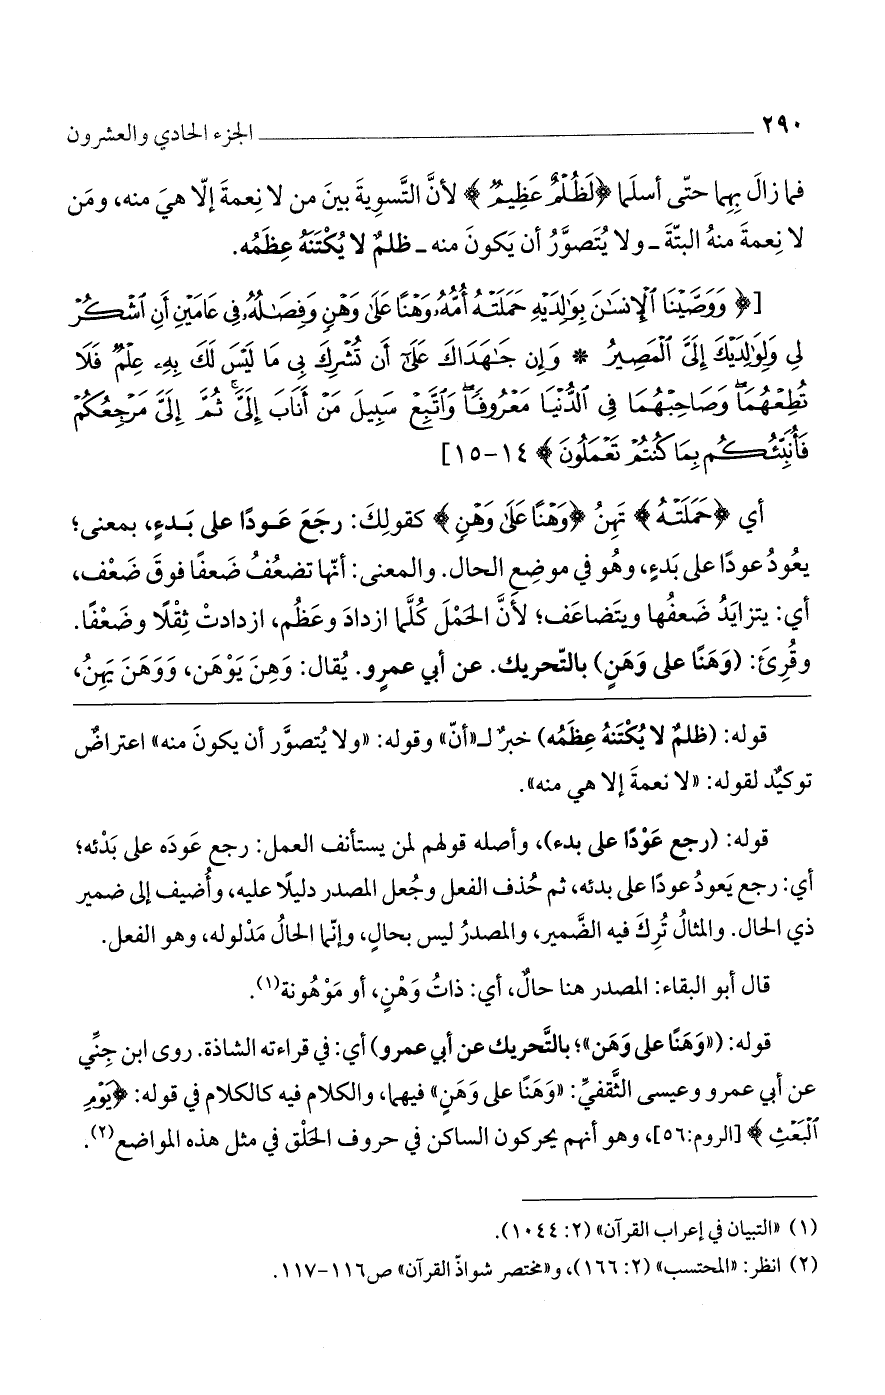 ٢٩٠ ــــــــــــــ الجزء الحادي والعشرون
فما زالَ بِهِما حتّى أسلَما ﴿لَظُلْمٌ عَظِيمٌ﴾ لأنَّ التَّسوِيةَ بينَ من لا نِعمةَ إلّا هيَ منه، ومَن
لا نِعمةَ منهُ البتّةَ ـ ولا يُتصوَّرُ أن يَكونَ منه ـ ظلمٌ لا يُكْتَنَهُ عِظَمُه.
[﴿وَوَصَّيْنَا ٱلْإِنسَٰنَ بِوَٰلِدَيْهِ حَمَلَتْهُ أُمُّهُۥ وَهْنًا عَلَىٰ وَهْنٍ وَفِصَٰلُهُۥ فِى عَامَيْنِ أَنِ ٱشْكُرْ
لِى وَلِوَٰلِدَيْكَ إِلَىَّ ٱلْمَصِيرُ * وَإِن جَٰهَدَاكَ عَلَىٰٓ أَن تُشْرِكَ بِى مَا لَيْسَ لَكَ بِهِۦ عِلْمٌ فَلَا
تُطِعْهُمَا ۖ وَصَاحِبْهُمَا فِى ٱلدُّنْيَا مَعْرُوفًا ۖ وَٱتَّبِعْ سَبِيلَ مَنْ أَنَابَ إِلَىَّ ۚ ثُمَّ إِلَىَّ مَرْجِعُكُمْ
فَأُنَبِّئُكُم بِمَا كُنتُمْ تَعْمَلُونَ﴾ ١٤-١٥]
أي ﴿حَمَلَتْهُ﴾ تَهِنُ ﴿وَهْنًا عَلَىٰ وَهْنٍ﴾ كقولِكَ: رجَعَ عَودًا على بَدءٍ، بمعنى؛
يعُودُ عودًا على بَدءٍ، وهُو في موضِعِ الحال. والمعنى: أنّها تضعُفُ ضَعفًا فوقَ ضَعْف،
أي: يتزايَدُ ضَعفُها ويتَضاعَف؛ لأنَّ الحَمْلَ كُلَّما ازدادَ وعَظُم، ازدادتْ ثِقْلًا وضَعْفًا.
وقُرِئَ: (وَهَنًا على وَهَنٍ) بالتّحريك. عن أبي عمرٍو. يُقال: وَهِنَ يَوْهَن، وَوَهَنَ يَهِنُ،
قوله: (ظلمٌ لا يُكْتَنَهُ عِظَمُه) خبرٌ لـ«أنّ» وقوله: «ولا يُتصوَّر أن يكونَ منه» اعتراضٌ
توكيدٌ لقوله: «لا نعمةَ إلا هي منه».
قوله: (رجع عَوْدًا على بدء)، وأصله قولهم لمن يستأنف العمل: رجع عَودَه على بَدْئه؛
أي: رجع يَعودُ عودًا على بدئه، ثم حُذف الفعل وجُعل المصدر دليلًا عليه، وأُضيف إلى ضمير
ذي الحال. والمثالُ تُرِكَ فيه الضَّمير، والمصدرُ ليس بحالٍ، وإنّما الحالُ مَدْلوله، وهو الفعل.
قال أبو البقاء: المصدر هنا حالٌ، أي: ذاتُ وَهْنٍ، أو مَوْهُونة(١).
قوله: («وَهَنًا على وَهَن»؛ بالتَّحريك عن أبي عمرو) أي: في قراءته الشاذة. روى ابن جِنِّي
عن أبي عمرو وعيسى الثَّقفيِّ: «وَهَنًا على وَهَنٍ» فيهما، والكلام فيه كالكلام في قوله: ﴿يَوْمِ
ٱلْبَعْثِ﴾ [الروم:٥٦]، وهو أنهم يحركون الساكن في حروف الحَلْق في مثل هذه المواضع(٢).
(١) «التبيان في إعراب القرآن» (٢: ١٠٤٤).
(٢) انظر: «المحتسب» (٢: ١٦٦)، و«مختصر شواذّ القرآن» ص١١٦-١١٧.